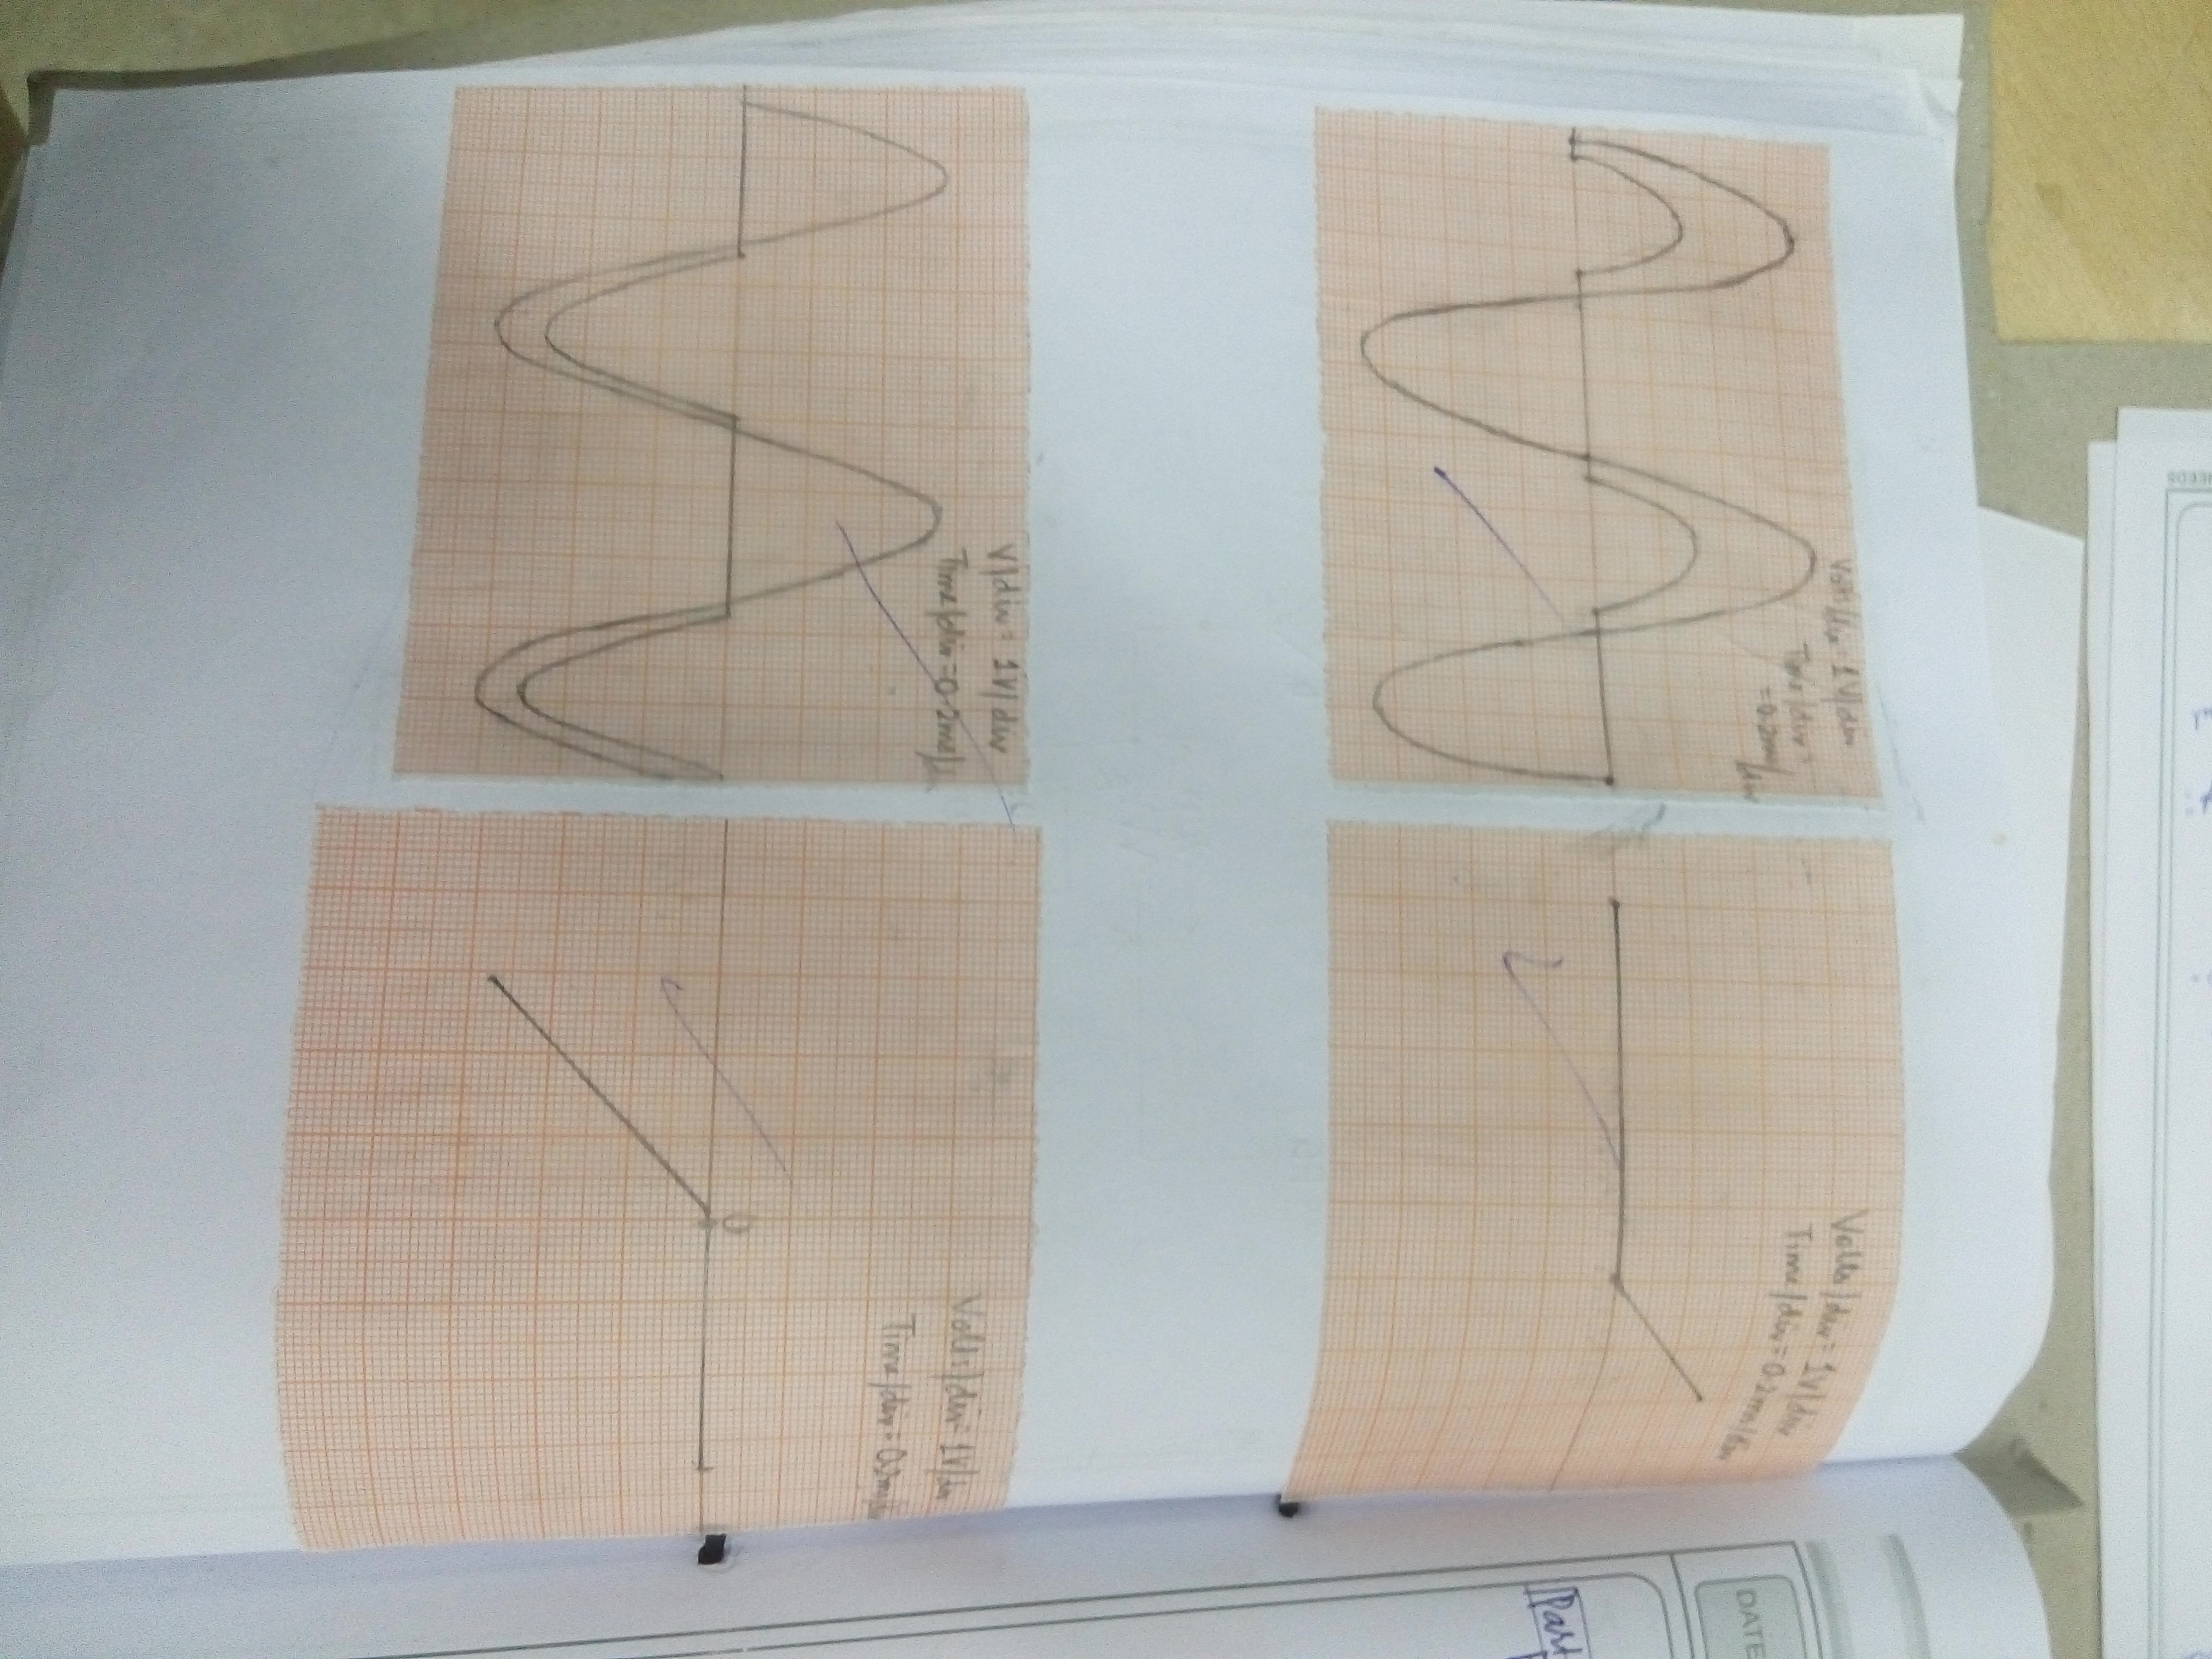 NEEDS
Volts/div=1V/div
Time/div=
=0.2ms/div
Volts/div=1V/div
Time/div=0.2ms/div
DATE
Part
V/div=1V/div
Time/div=0.2ms/di
Volts/div=1V/div
Time/div=0.2ms/div
0